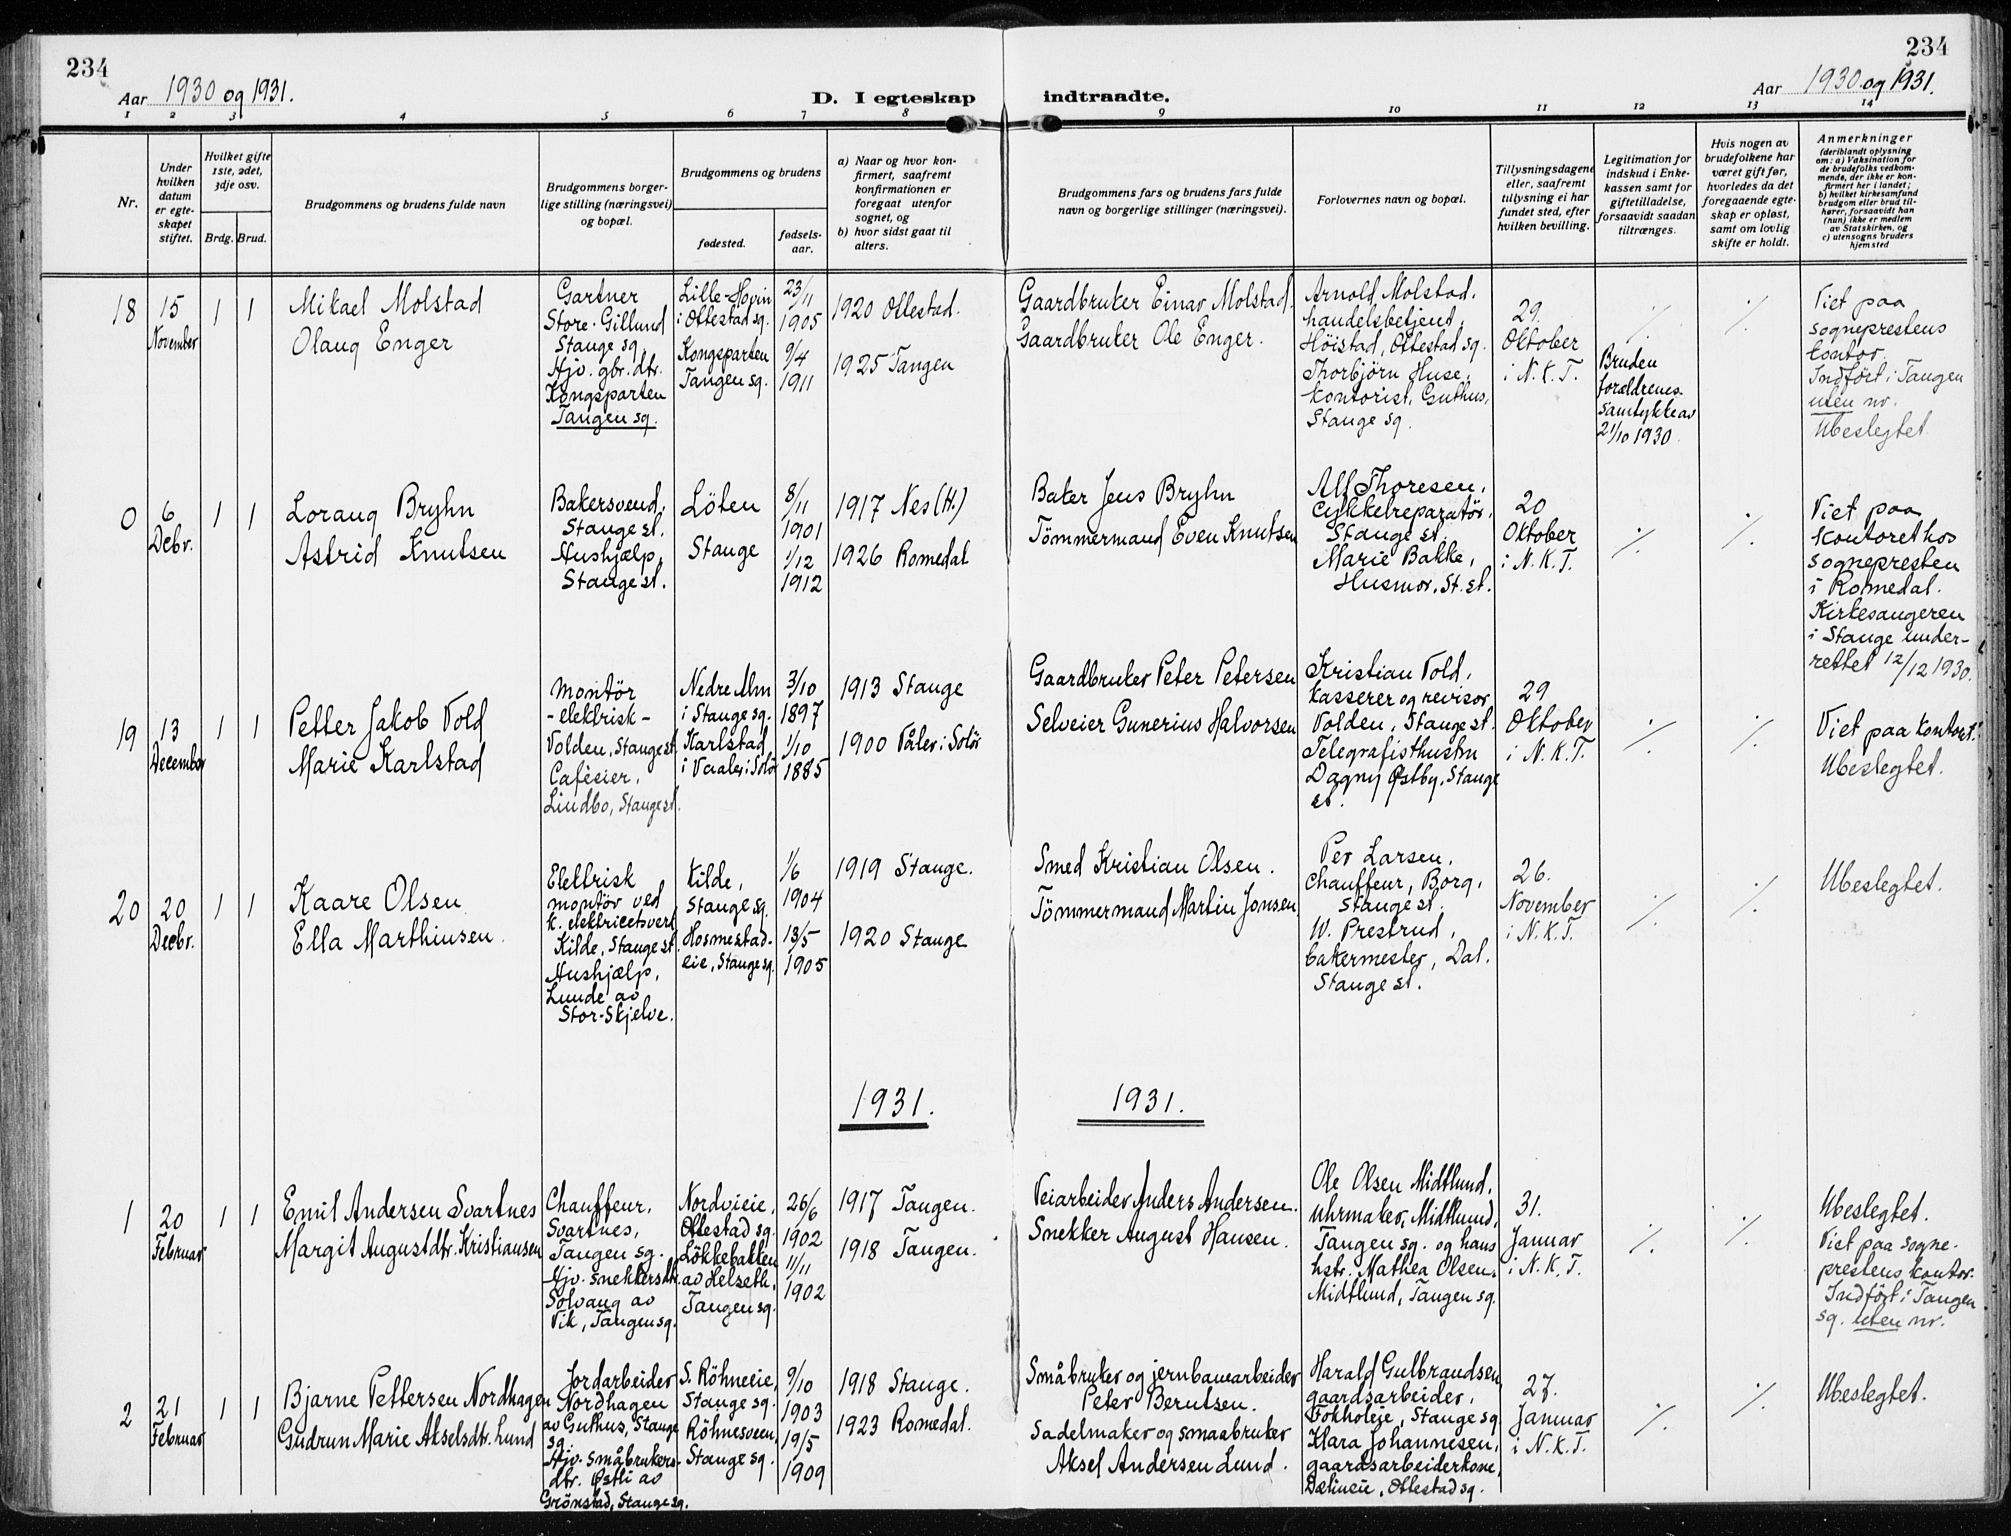 234
234
Aar 1930 og 1931.
D. I egteskap indtraadte.
Aar 1930 og 1931.
1 2 3 4 5 6 7 8 9 10 11 12 13 14
Nr.
Under
hvilken
datum
er egte-
skapet
stiftet.
Hvilket gifte
1ste, 2det,
3dje osv.
Brdg. Brud.
Brudgommens og brudens fulde navn
Brudgommens borger-
lige stilling (næringsvei)
og bopæl.
Brudgommens og brudens
fødested.
fødsels-
aar.
a) Naar og hvor kon-
firmert, saafremt
konfirmationen er
foregaat utenfor
sognet, og
b) hvor sidst gaat til
alters.
Brudgommens fars og brudens fars fulde
navn og borgerlige stillinger (næringsvei).
Forlovernes navn og bopæl.
Tillysningsdagene
eller, saafremt
tillysning ei har
fundet sted, efter
hvilken bevilling.
Legitimation for
indskud i Enke-
kassen samt for
giftetilladelse,
forsaavidt saadan
tiltrænges.
Hvis nogen av
brudefolkene har
været gift før,
hvorledes da det
foregaaende egte-
skap er opløst,
samt om lovlig
skifte er holdt.
Anmerkninger
(deriblandt oplysning
om: a) Vaksination for
de brudefolks vedkom-
mende, der ikke er kon-
firmert her i landet;
b) hvilket kirkesamfund
brudgom eller brud til-
hører, forsaavidt han
(hun) ikke er medlem
av Statskirken, og
c) utensogns bruders
hjemsted
18
15
November
1 1
Mikael Molstad
Olaug Enger
Gartner
Store-Gillund
Stange sg.
Hjv. gbr. dtr.
Kongsparten
Tangen sg.
Lille-Hovin
i Ottestad sg.
Kongsparten
Tangen sg.
23/11
1905
9/4
1911
1920 Ottestad.
1925 Tangen
Gaardbruker Einar Molstad.
Gaardbruker Ole Enger.
Arnold Molstad,
handelsbetjent,
Høistad, Ottestad sg.
Thorbjørn Huse,
kontorist, Guthus,
Stange sg.
29.
Oktober
i N.K.T.
%
Bruden
forældrenes
samtykke av
21/10 1930.
%
Viet paa
sogneprestens
kontor.
Indført i Tangen
uten nr.
Ubeslegtet.
0
6
Debr.
1 1
Loraug Bryhn
Astrid Knutsen
Bakersvend,
Stange st.
Hushjælp,
Stange st.
Löten
Stange
8/11
1901
1/12
1912
1917 Nes (H.)
1926 Romedal
Baker Jens Bryhn
Tömmermand Even Knutsen
Alf Thoresen,
Cykkelreparatör,
Stange st.
Marie Bakke,
Husmor, St. st.
20
Oktober
i N.K.T.
%
%
Viet paa
kontoret hos
sognepresten
i Romedal.
Kirkesangeren
i Stange under-
rettet 12/12 1930.
19
13
December
1 1
Petter Jakob Vold
Marie Karlstad
Montör
-elektrisk-
Volden, Stange st.
Cafèeier,
Lindbo, Stange st.
Nedre Alm
i Stange sg.
Karlstad
i Vaaler i Solör
3/10
1897
1/10
1885
1913 Stange
1900 Våler i Solör
Gaardbruker Peter Petersen
Selveier Gunerius Halvorsen
Kristian Vold,
kasserer og revisor
Volden, Stange st.
Telegrafisthustru
Dagny Østby, Stange
st.
29
Oktober
i N.K.T.
%
%
Viet paa kontoret.
Ubeslegtet.
20
20
Decbr.
1 1
Kaare Olsen
Ella Marthinsen.
Elektrisk
montör ved
k. elektricetsverk
Kilde, Stange st.
Hushjælp,
Lunde av
Stor-Skjelve.
Kilde,
Stange sg.
Hosmestad-
eie, Stange sg.
1/6
1904
13/5
1905
1919 Stange.
1920 Stange
Smed Kristian Olsen.
Tömmermand Martin Jonsen
Per Larsen,
Chauffeur, Borg,
Stange st.
W. Prestrud,
bakermester, Dal.
Stange st.
26.
November
i N.K.T.
%
%
Ubeslegtet.
1931.
1931.
1
20
Februar
1 1
Emil Andersen Svartnes
Margit Augustdtr. Kristiansen
Chauffeur,
Svartnes,
Tangen sg.
Hjv. snekkersdtr.
Solvang av
Vik, Tangen sg.
Nordvieie,
Ottestad sg.
Lökkebakken
av Helseth,
Tangen sg.
26/6
1902
11/11
1902
1917 Tangen.
1918 Tangen.
Veiarbeider Anders Andersen.
Snekker August Hansen.
Ole Olsen Midtlund,
uhrmaker, Midtlund,
Tangen sg. og hans
hstr. Mathea Olsen,
Midtlund, Tangen sg.
31.
Januar
i N.K.T.
%
%
Ubeslegtet.
Viet paa sogne-
prestens kontor.
Indført i Tangen
sg. uten nr.
2
21
Februar
1 1
Bjarne Pettersen Nordhagen
Gudrun Marie Akselsdtr. Lund
Jordarbeider
Nordhagen
av Guthus, Stange
sg.
Hjv. småbrukers-
dtr. Østli av
Grønstad, Stange sg.
S. Röhneeie,
Stange sg.
Röhnesveen,
Stange sg.
9/10
1903
19/5
1909
1918 Stange.
1923 Romedal.
Småbruker og jernbanearbeider
Peter Berntsen.
Sadelmaker og smaabruker
Aksel Andersen Lund.
Harald Gulbrandsen,
gaardsarbeider,
Fokholeie, Stange sg.
Klara Johannesen,
gaardsarbeiderkone,
Dælineie, Ottestad sg.
27.
Januar
i N.K.T.
%
%
Ubeslegtet.